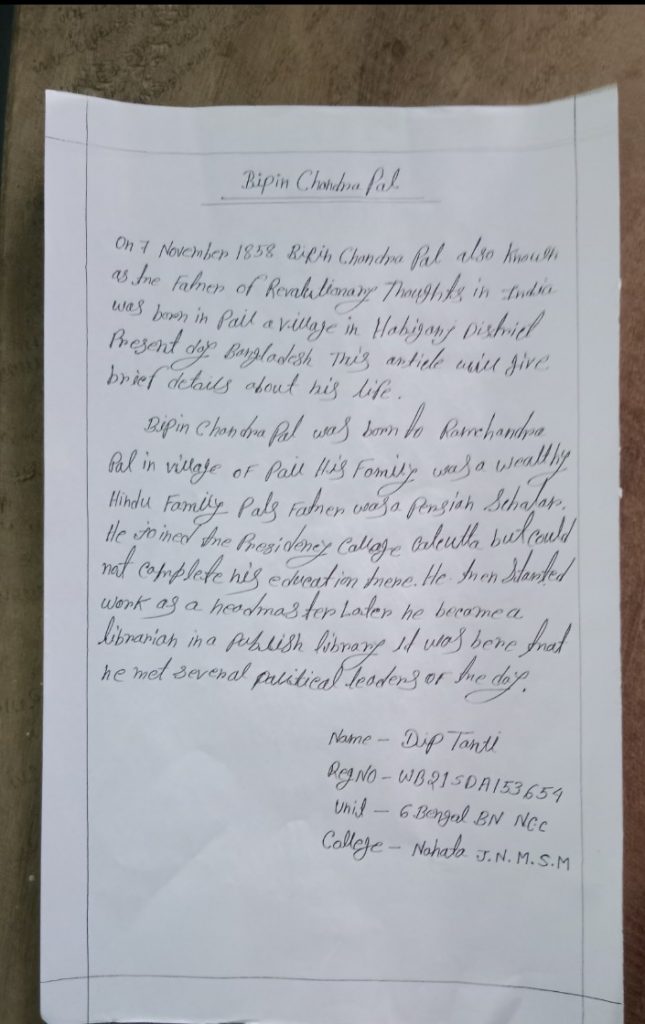 Bipin Chandra Pal
On 7 November 1858 Bipin Chandra Pal also known
as the Father of Revalutionary Thoughts in India
was born in Pail a village in Habiganj District
Present day Bangladesh This article will give
brief details about his life.
Bipin Chandra Pal was born to Ramchandra
Pal in village of Pail His Family was a wealthy
Hindu Family Pals Father was a Persian Scholar.
He joined the Presidency Collage Calcutta but could
not complete his education there. He then started
work as a headmaster Later he became a
librarian in a publish library It was here that
he met several political leaders of the day.
Name - Dip Tanti
Reg NO - WB21SDA153654
Unit - 6 Bengal BN NCC
College - Nahata J.N.M.S.M